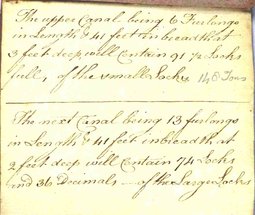 The upper Canal being 6 Furlongs
in Length & 41 feet in breadth at
3 feet deep, will Contain 91 72 Locks
full, of the small Locks 148 Tons
The next Canal being 13 furlongs
in Length & 41 feet in breadth at
2 feet deep will Contain 74 Locks
and 36 Decimals — of the Large Locks